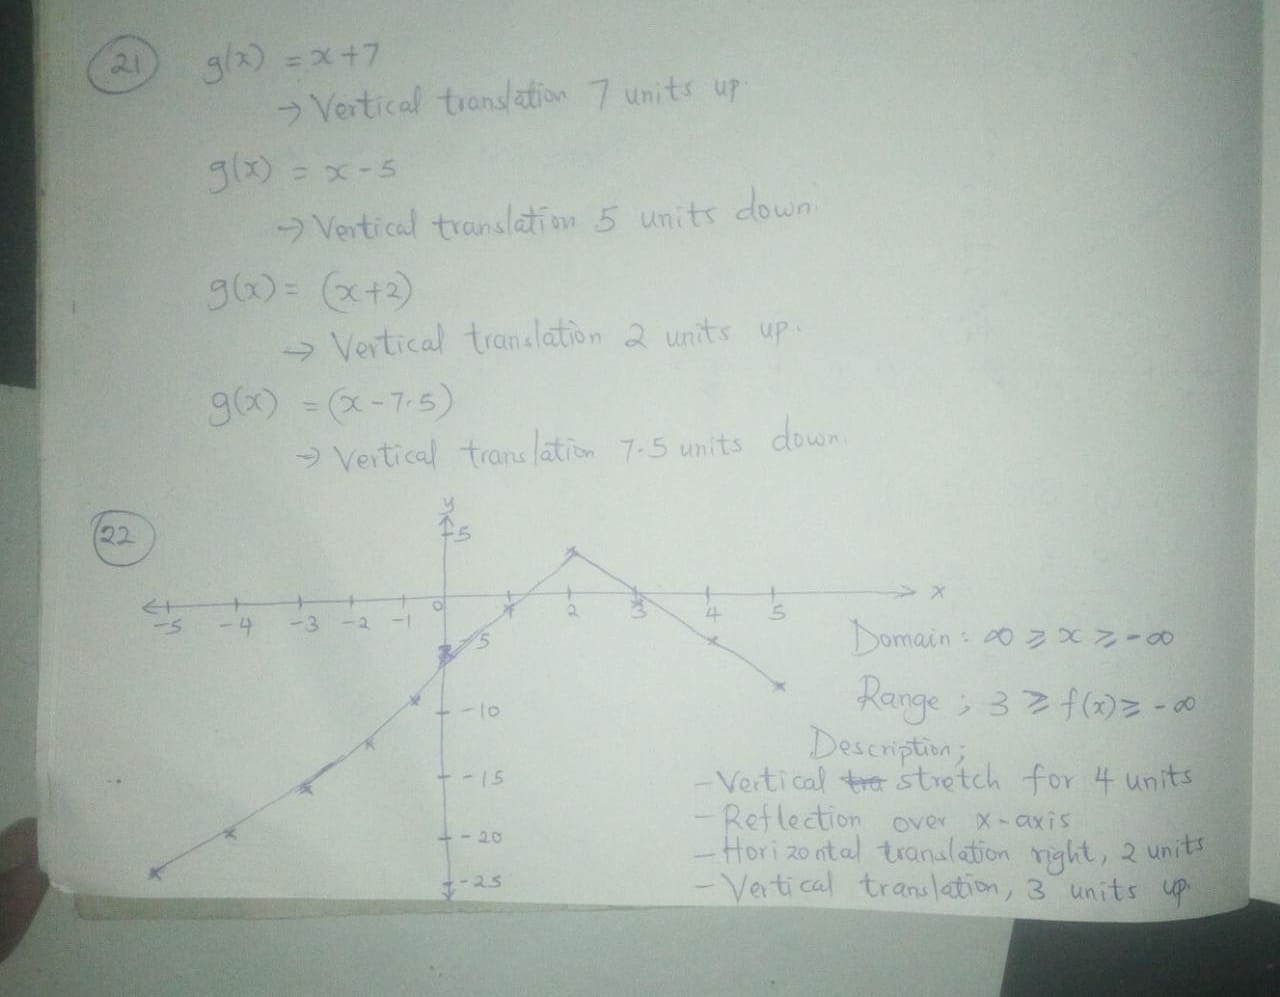 21 g(x) = x+7
→ Vertical translation 7 units up.
g(x) = x-5
→ Vertical translation 5 units down.
g(x) = (x+2)
→ Vertical translation 2 units up.
g(x) = (x-7.5)
→ Vertical translation 7.5 units down.
22
y
5
-5 -4 -3 -2 -1 0 2 3 4 5 x
-5
-10
-15
-20
-25
Domain : ∞ ≥ x ≥ -∞
Range ; 3 ≥ f(x) ≥ -∞
Description;
- Vertical tra stretch for 4 units
- Reflection over x-axis
- Horizontal translation right, 2 units
- Vertical translation, 3 units up.